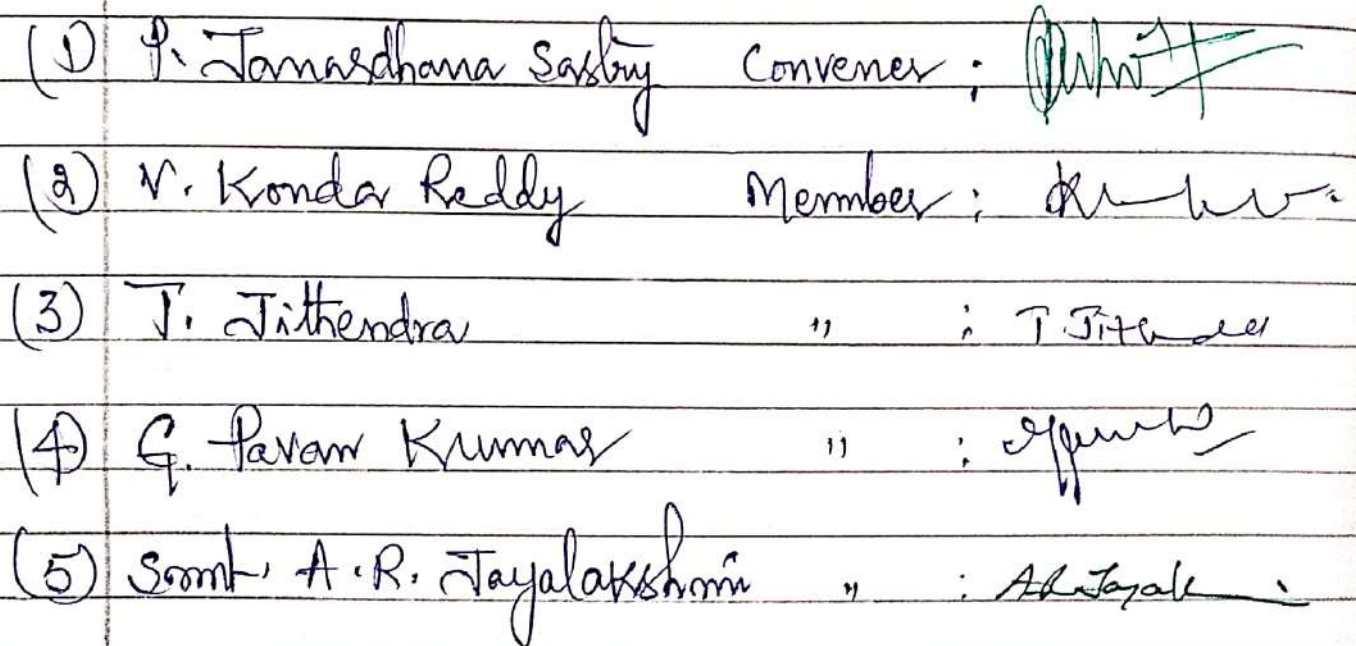 (1) P. Janardhana Sastry Convener :
(2) V. Konda Reddy Member :
(3) T. Jithendra " : T Jith
(4) G. Pavan Kumar " :
(5) Smt. A.R. Jayalakshmi " : AR Jayal